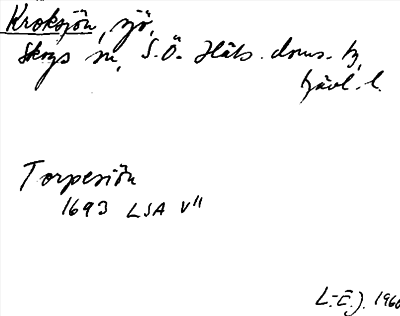 Kroksjön, sjö,
Skogs sn, S.Ö. Häls. doms. tg,
Gävl. l.
Torpesiön
1693 LSA V11
L-E.J. 1960